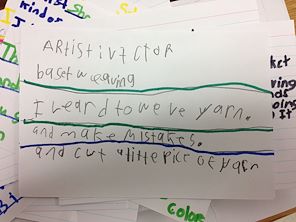 ARtist ivctor
basetweaving
I leard to weve yarn.
and make mistakes.
and cut alitte pice of yarn
kinder
Color